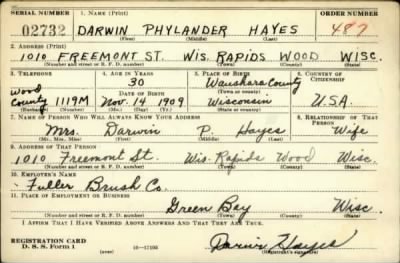 SERIAL NUMBER 1. NAME (Print) ORDER NUMBER
02732 DARWIN PHYLANDER HAYES 487
(First) (Middle) (Last)
2. ADDRESS (Print)
1010 FREEMONT ST. WIS. RAPIDS WOOD WISC.
(Number and street or R. F. D. number) (Town) (County) (State)
3. TELEPHONE 4. AGE IN YEARS 5. PLACE OF BIRTH 6. COUNTRY OF CITIZENSHIP
Wood County 1119M 30 Waushara County
DATE OF BIRTH
Nov. 14 1909 Wisconsin U.S.A.
(Exchange) (Number) (Mo.) (Day) (Yr.) (State or country)
7. NAME OF PERSON WHO WILL ALWAYS KNOW YOUR ADDRESS 8. RELATIONSHIP OF THAT PERSON
Mrs. Darwin P. Hayes Wife
(Mr., Mrs., Miss) (First) (Middle) (Last)
9. ADDRESS OF THAT PERSON
1010 Freemont St. Wis. Rapids Wood Wisc.
(Number and street or R. F. D. number) (Town) (County) (State)
10. EMPLOYER'S NAME
Fuller Brush Co.
11. PLACE OF EMPLOYMENT OR BUSINESS
Green Bay Wisc.
(Number and street or R. F. D. number) (Town) (County) (State)
I AFFIRM THAT I HAVE VERIFIED ABOVE ANSWERS AND THAT THEY ARE TRUE.
REGISTRATION CARD
D. S. S. Form 1 Darwin Hayes
(Registrant's signature)